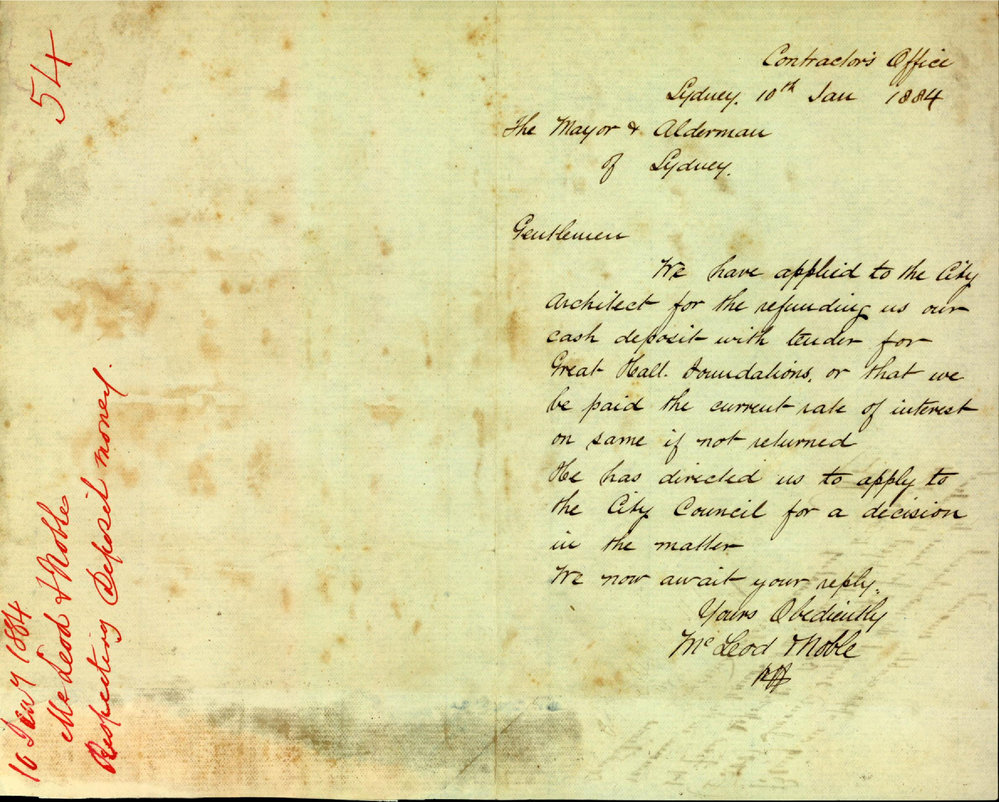 54
16 Jany 1884
McLeod & Noble
Respecting Deposit money.
Contractor's Office
Sydney. 10th Jan 1884
The Mayor & Alderman
of Sydney.
Gentlemen
We have applied to the City
Architect for the refunding us our
cash deposit with tender for
Great Hall. Foundations, or that we
be paid the current rate of interest
on same if not returned
He has directed us to apply to
the City Council for a decision
in the matter
We now await your reply.
Yours Obediently
Mc Leod & Noble